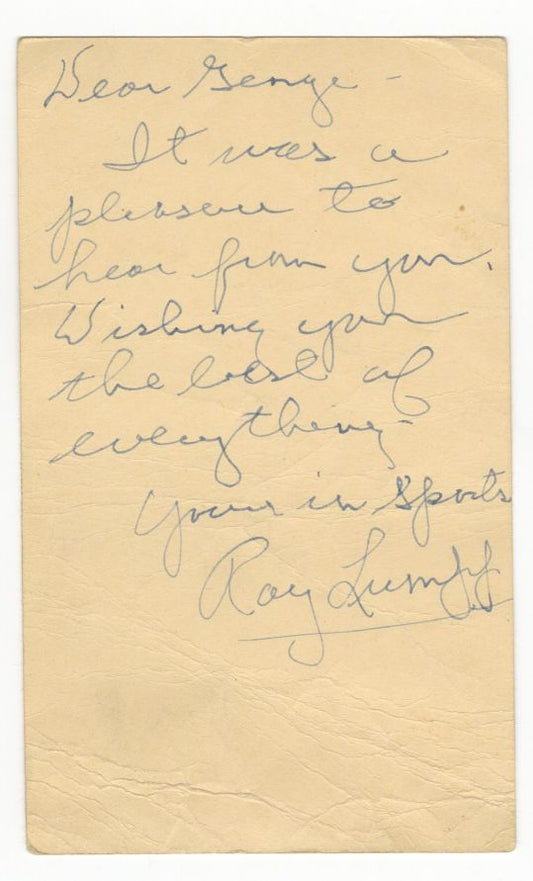 Dear George -
It was a
pleasure to
hear from you.
Wishing you
the best of
everything -
Yours in Sports
Ray Lumpp